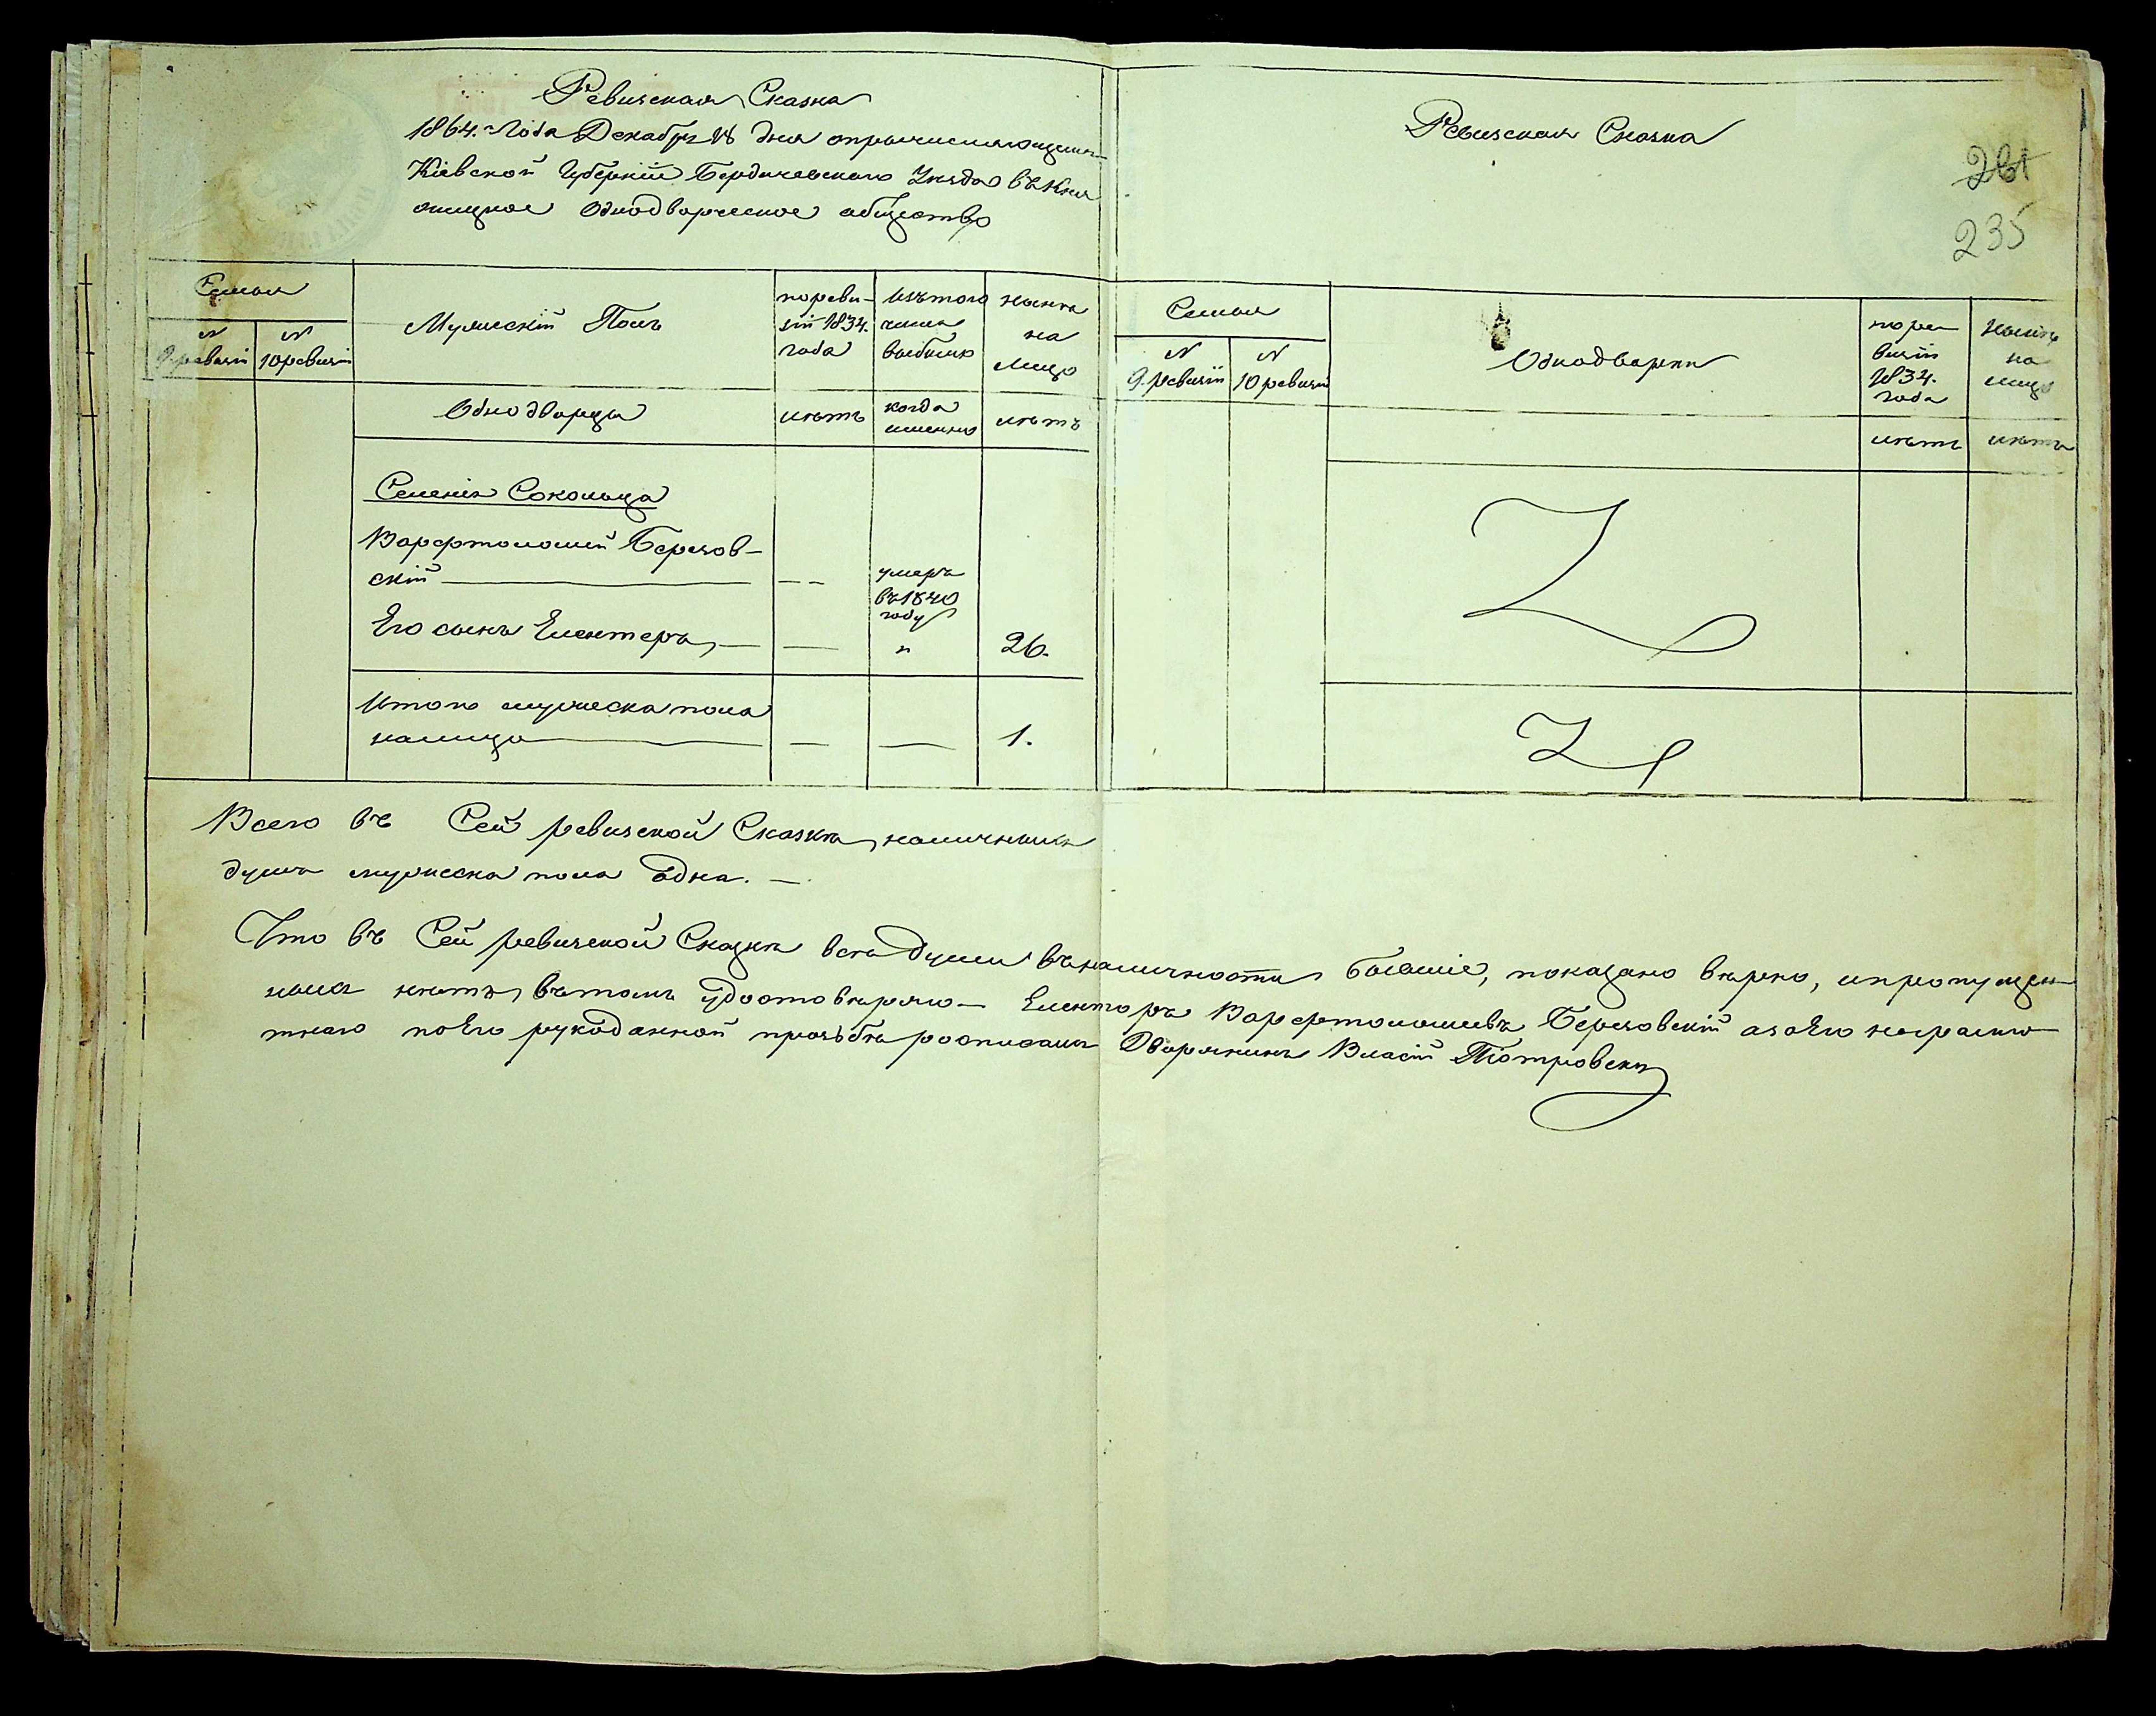 Ревизская Сказка
1864. Года Декабря 18 дня опричисляющемся
Кіевской Губерніи Бердичевскаго Уѣзда въ Кня
жицкое Однодворческое общество
Семья
N 9. ревизіи
N 10 ревизіи
Мужескій Полъ
Однодворцы
пореви-
зіи 1834.
года
лѣтъ
изътого
числа
выбыло
когда
именно
нынѣ
на
лицо
лѣтъ
Селенія Сокольца
Варфтоломей Березов-
скій — — —
умеръ
въ 1840
году
Его сынъ Елентеръ, — — " 26.
Итого мужеска пола
налицо — — — 1.
Ревизская Сказка
261
235
Семья
N 9. ревизіи
N 10 ревизіи
Однодворки
поре
визіи
1834.
года
лѣтъ
нынѣ
на
лицо
лѣтъ
Всего въ Сей ревизской Сказкѣ, наличныхъ
душъ мужеска пола Одна. —
Что въ Сей ревизской Сказкѣ всѣ души въналичности бывшіе, показано вѣрно, ипропущен-
ныхъ нѣтъ, вътомъ удостовѣряю — Елентеръ Варфтоломеевъ Березовскій азаЕго неграмо
тнаго поЕго рукоданной прозьбѣ росписался Дворянинъ Піотровскій